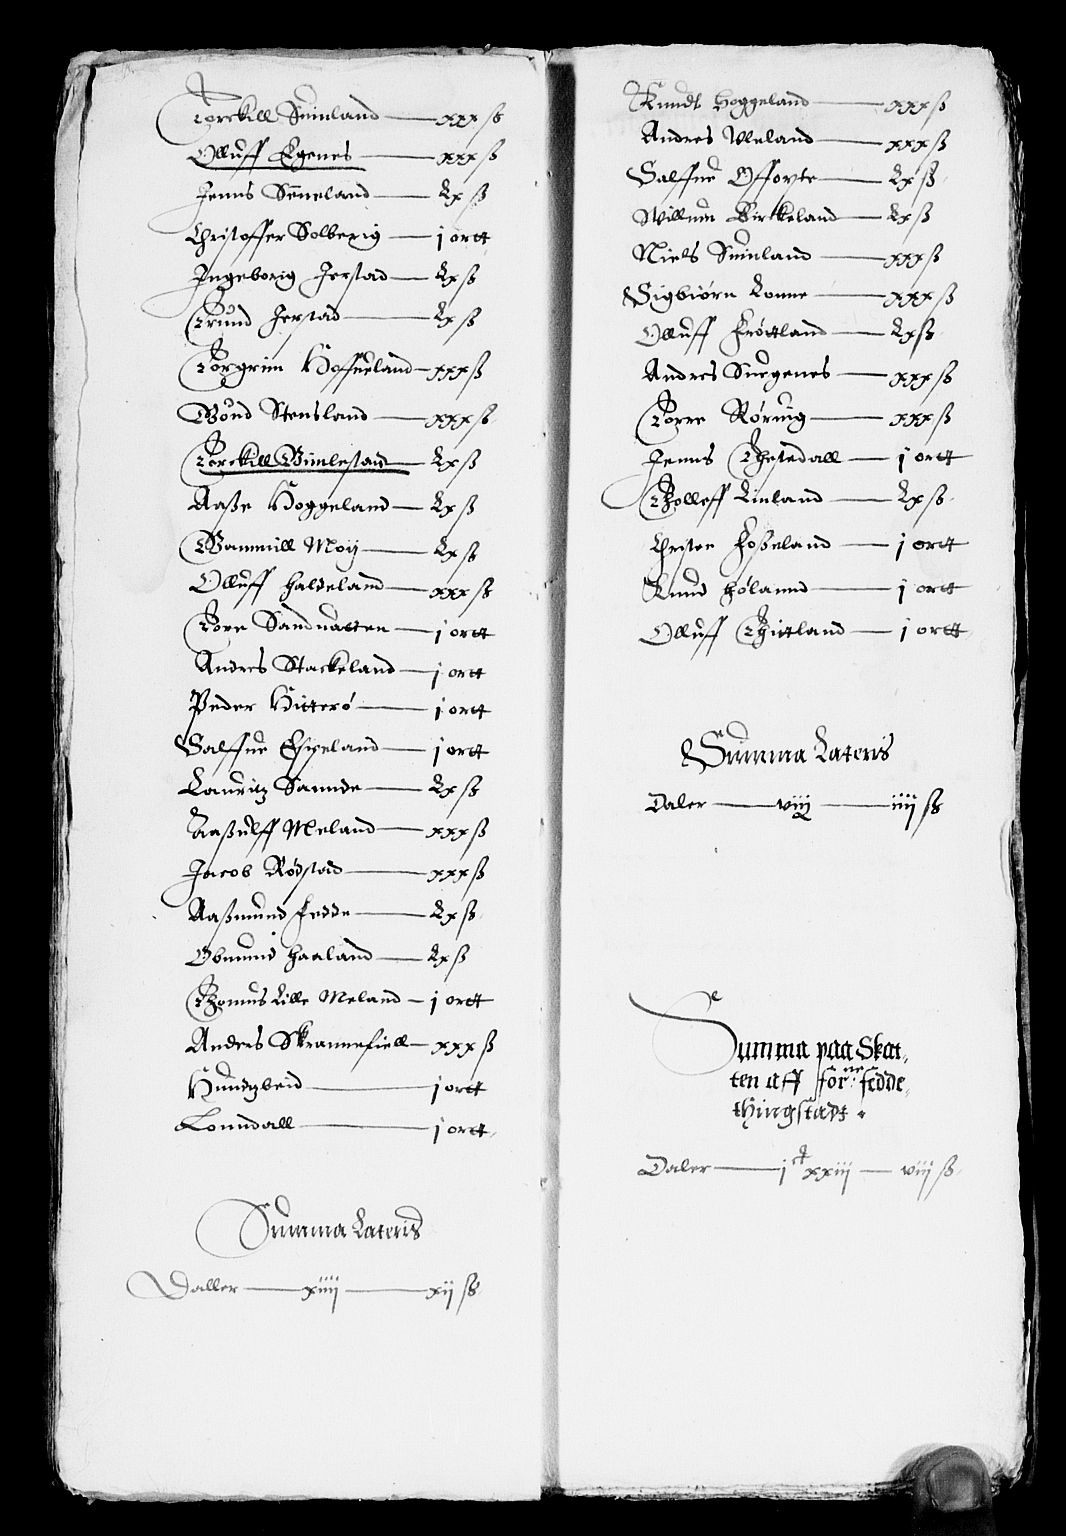 Torckill Suinland — xxx ß
Olluff Egenes — xxx ß
Jenns Seneland — Lx ß
Christoffer Solberig — j ortt
Ingeborig Jerstad — Lx ß
Trund Jerstad — Lx ß
Torgrim Hoffueland — xxx ß
Gund Stensland — xxx ß
Torckill Gimlestad — Lx ß
Aaße Hoggeland — Lx ß
Gammill Moij — Lx ß
Olluff haldeland — xxx ß
Tore Sanduatten — j ortt
Andres Stackeland — j ortt
Peder Hitterø — j ortt
Salffue Espeland — j ortt
Lauritz Sannde — Lx ß
Aaßulff Meland — xxx ß
Jacob Rødstad — xxx ß
Aaßmund Fedde — Lx ß
Obmund haaland — Lx ß
Thomus Lille Meland — j ortt
Andres Skrannefiell — xxx ß
— j ortt
Lonndall — j ortt
Summa Lateris
Daller — xiiij — xij ß
Knudt Hoggeland — xxx ß
Andres Ueland — xxx ß
Salffue — Lx ß
Willum Birkeland — Lx ß
Niels Suinland — xxx ß
Sigbiørn Lonne — xxx ß
Olluff Frøttland — Lx ß
Andres Suegenes — xxx ß
Torre Røruig — xxx ß
Jenns Thstedall — j ortt
Tholleff Linland — Lx ß
Christen Foßeland — j ortt
Knud hølannd — j ortt
Olluff Thittland — j ortt
Summa Lateris
Daler — viij — iiij ß
Summa paa Skat-
ten aff for:ne fedde
thingstadt
Daler — j ct xxiij — viij ß